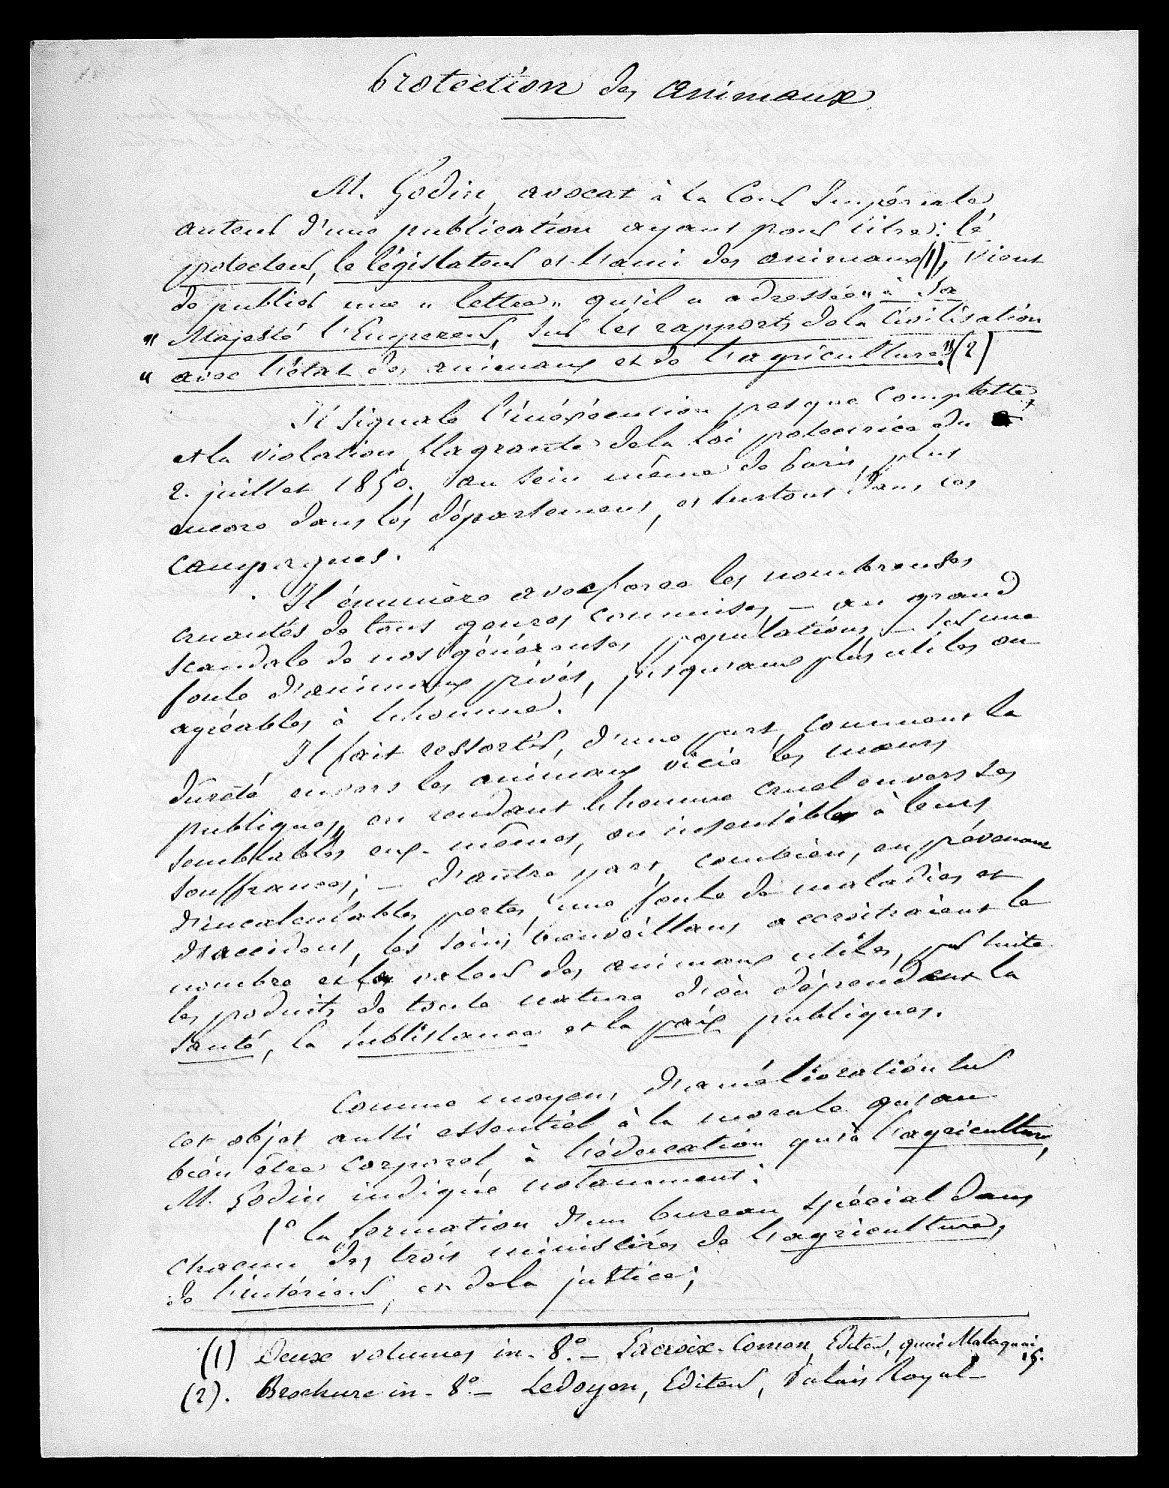 Protection des animaux
M. Godin, avocat à la Cour Impériale
auteur d'une publication ayant pour titre: le
protecteur, le législateur et l'ami des animaux (1), vient
de publier une « lettre » qu'il a adressée « à Sa
« Majesté l'Empereur, sur les rapports de la Civilisation
« avec l'état des animaux et de l'agriculture." (2)
Il signale l'inéxécution presque complette,
et la violation flagrante de la loi protectrice du
2. juillet 1850. au sein même de Paris, plus
encore dans les départemens, et surtout dans les
campagnes.
Il énumère avec force les nombreuses
cruautés de tous genres commises, – au grand
scandale de nos généreuses populations – sur une
foule d'animaux privés, jusqu'aux plus utiles ou
agréables à l'homme.
Il fait ressortir, d'une part, comment la
dureté envers les animaux vicie les mœurs
publiques, en rendant l'homme cruel envers ses
semblables eux-mêmes, ou insensible à leurs
souffrances; – d'autre part, combien, en prévenant
d'incalculables pertes, une foule de maladies et
d'accidens, les soins bienveillans accroîtraient le
nombre et la valeur des animaux utiles, par suite
les produits de toute nature d'où dépendent la
santé, la subsistance et la paix publiques.
Comme moyens d'amélioration sur
cet objet aussi essentiel à la morale qu'au
bien être corporel, à l'éducation qu'à l'agriculture,
M. Godin indique notamment:
1° la formation d'un bureau spécial dans
chacun des trois ministères de l'agriculture,
de l'intérieur, et de la justice;
(1) Deux volumes in-8°. – Lacroix-Comon, Editeur, quai Malaquai
15.
(2). Brochure in-8°. – Ledoyen, Editeur, Palais Royal –